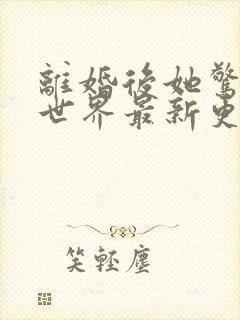 離婚後她驚
世界最新更
笑輕塵